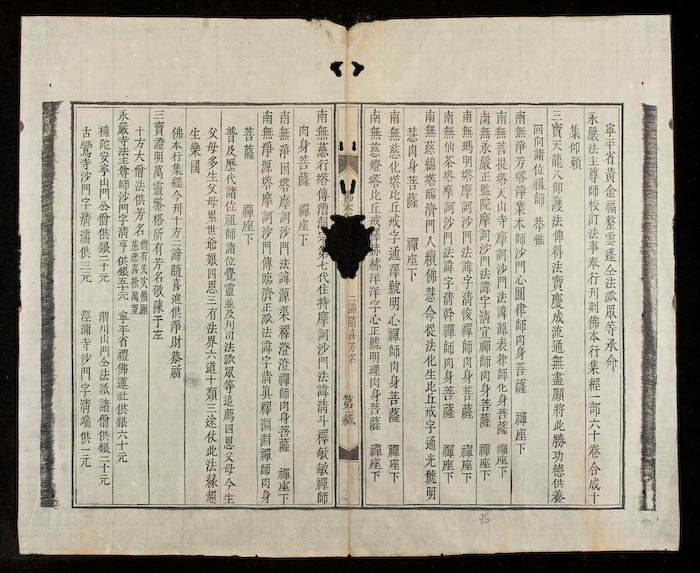 寧平省黃金福整雲蓬全法派眾等承命
永嚴法主尊師校訂法事奉行刊刻佛本行集經一部六十卷合成十
集仰賴
三寶天龍八部護法俾得法寶慶成流通無盡願將此勝功德供養
回向諸位祖師 恭惟
南無淨芳塔淨業本師沙門心圓律師肉身菩薩 禪座下
南無菩提塔大山寺摩訶沙門法諱源表律師化身菩薩 禪座下
南無永嚴正監院摩訶沙門法諱字清宣禪師肉身菩薩 禪座下
南無瑪明塔摩訶沙門法諱字清俊禪師肉身菩薩 禪座下
南無仙茶塔摩訶沙門法諱字清幹禪師肉身菩薩 禪座下
南無慈緫塔臨濟門人續佛慧命從法化生比丘戒字通光號明
慧肉身菩薩 禪座下
南無慈化塔比丘戒字通澤號明心禪師肉身菩薩 禪座下
南無慈燈塔比丘戒釋赫赫洋洋字心正號明理肉身菩薩 禪座下
二諦隨喜芳名
南無慈行塔傳漕洞第七代住持摩訶沙門法諱清斗釋敏敏禪師
肉身菩薩 禪座下
南無淨因塔摩訶沙門法諱源渠釋澄澄禪師肉身菩薩 禪座下
南無淨源塔摩訶沙門傳臨濟正派法諱字清真釋淵淵禪師肉身
菩薩 禪座下
普及歷代諸位祖師諸位覺靈並及列司法派眾等追薦四恩父母今生
父母多生父母累世爺娘四恩三有法界六道十類三途仗此法緣超
生樂國
佛本行集經今刊十方二諦隨喜進供淨財恭祈
三寶證明萬靈鑒格所有芳名敬陳于左
十方大僧法供芳名 倘有先欠惟願慈悲喜捨萬望
永嚴寺法主尊師沙門字清亨供銀五十元 寧平省禮佛蓮社供銀六十元
補陀安寧山門公僧供銀二十元 渭川山門全法派諸僧供銀二十元
古鸞寺沙門字清濡供三元 涇浦寺沙門字清端供一元